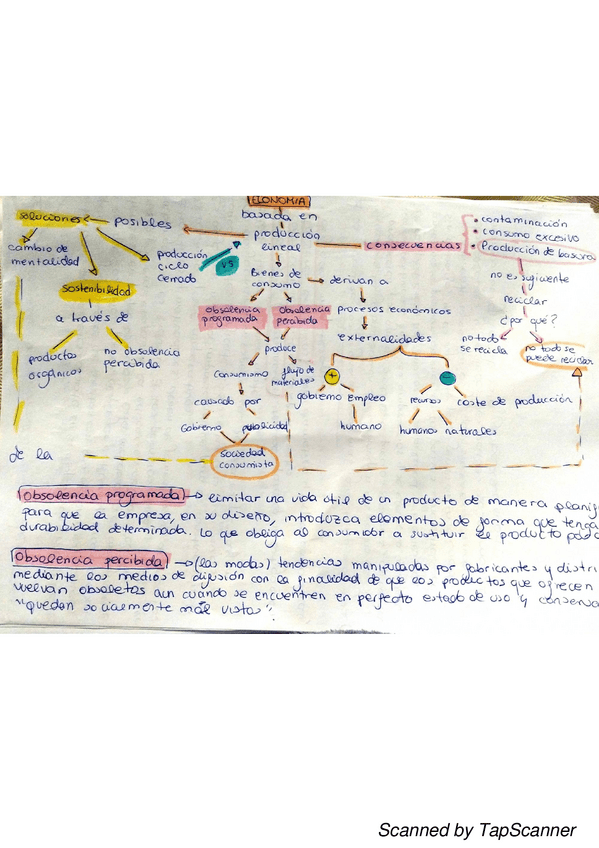 ECONOMIA
basada en
producción
lineal
soluciones
posibles
cambio de
mentalidad
sostenibilidad
a través de
productos
orgánicos
no obsolencia
percibida
producción
ciclo
cerrado
VS
consecuencias
• contaminación
• consumo excesivo
• Producción de basura
no es suficiente
reciclar
¿por qué?
no todo
se recicla
no todo se
puede reciclar
Bienes de
consumo
derivan a
procesos económicos
externalidades
+
-
gobierno empleo
humano
recursos
coste de producción
humanos naturales
obsolencia
programada
obsolencia
percibida
produce
consumismo
flujo de
materiales
causado por
Gobierno
publicidad
sociedad
consumista
de la
Obsolencia programada → limitar una vida útil de un producto de manera
para que la empresa, en su diseño, introduzca elementos de forma que tenga
durabilidad determinada. Lo que obliga al consumidor a sustituir el producto
Obsolencia percibida → (las modas) tendencias manipuladas por fabricantes y distri
mediante los medios de difusión con la finalidad de que los productos que ofrecen
vuelvan obsoletos aun cuando se encuentren en perfecto estado de uso y
"quedan socialmente mal vistos".
Scanned by TapScanner